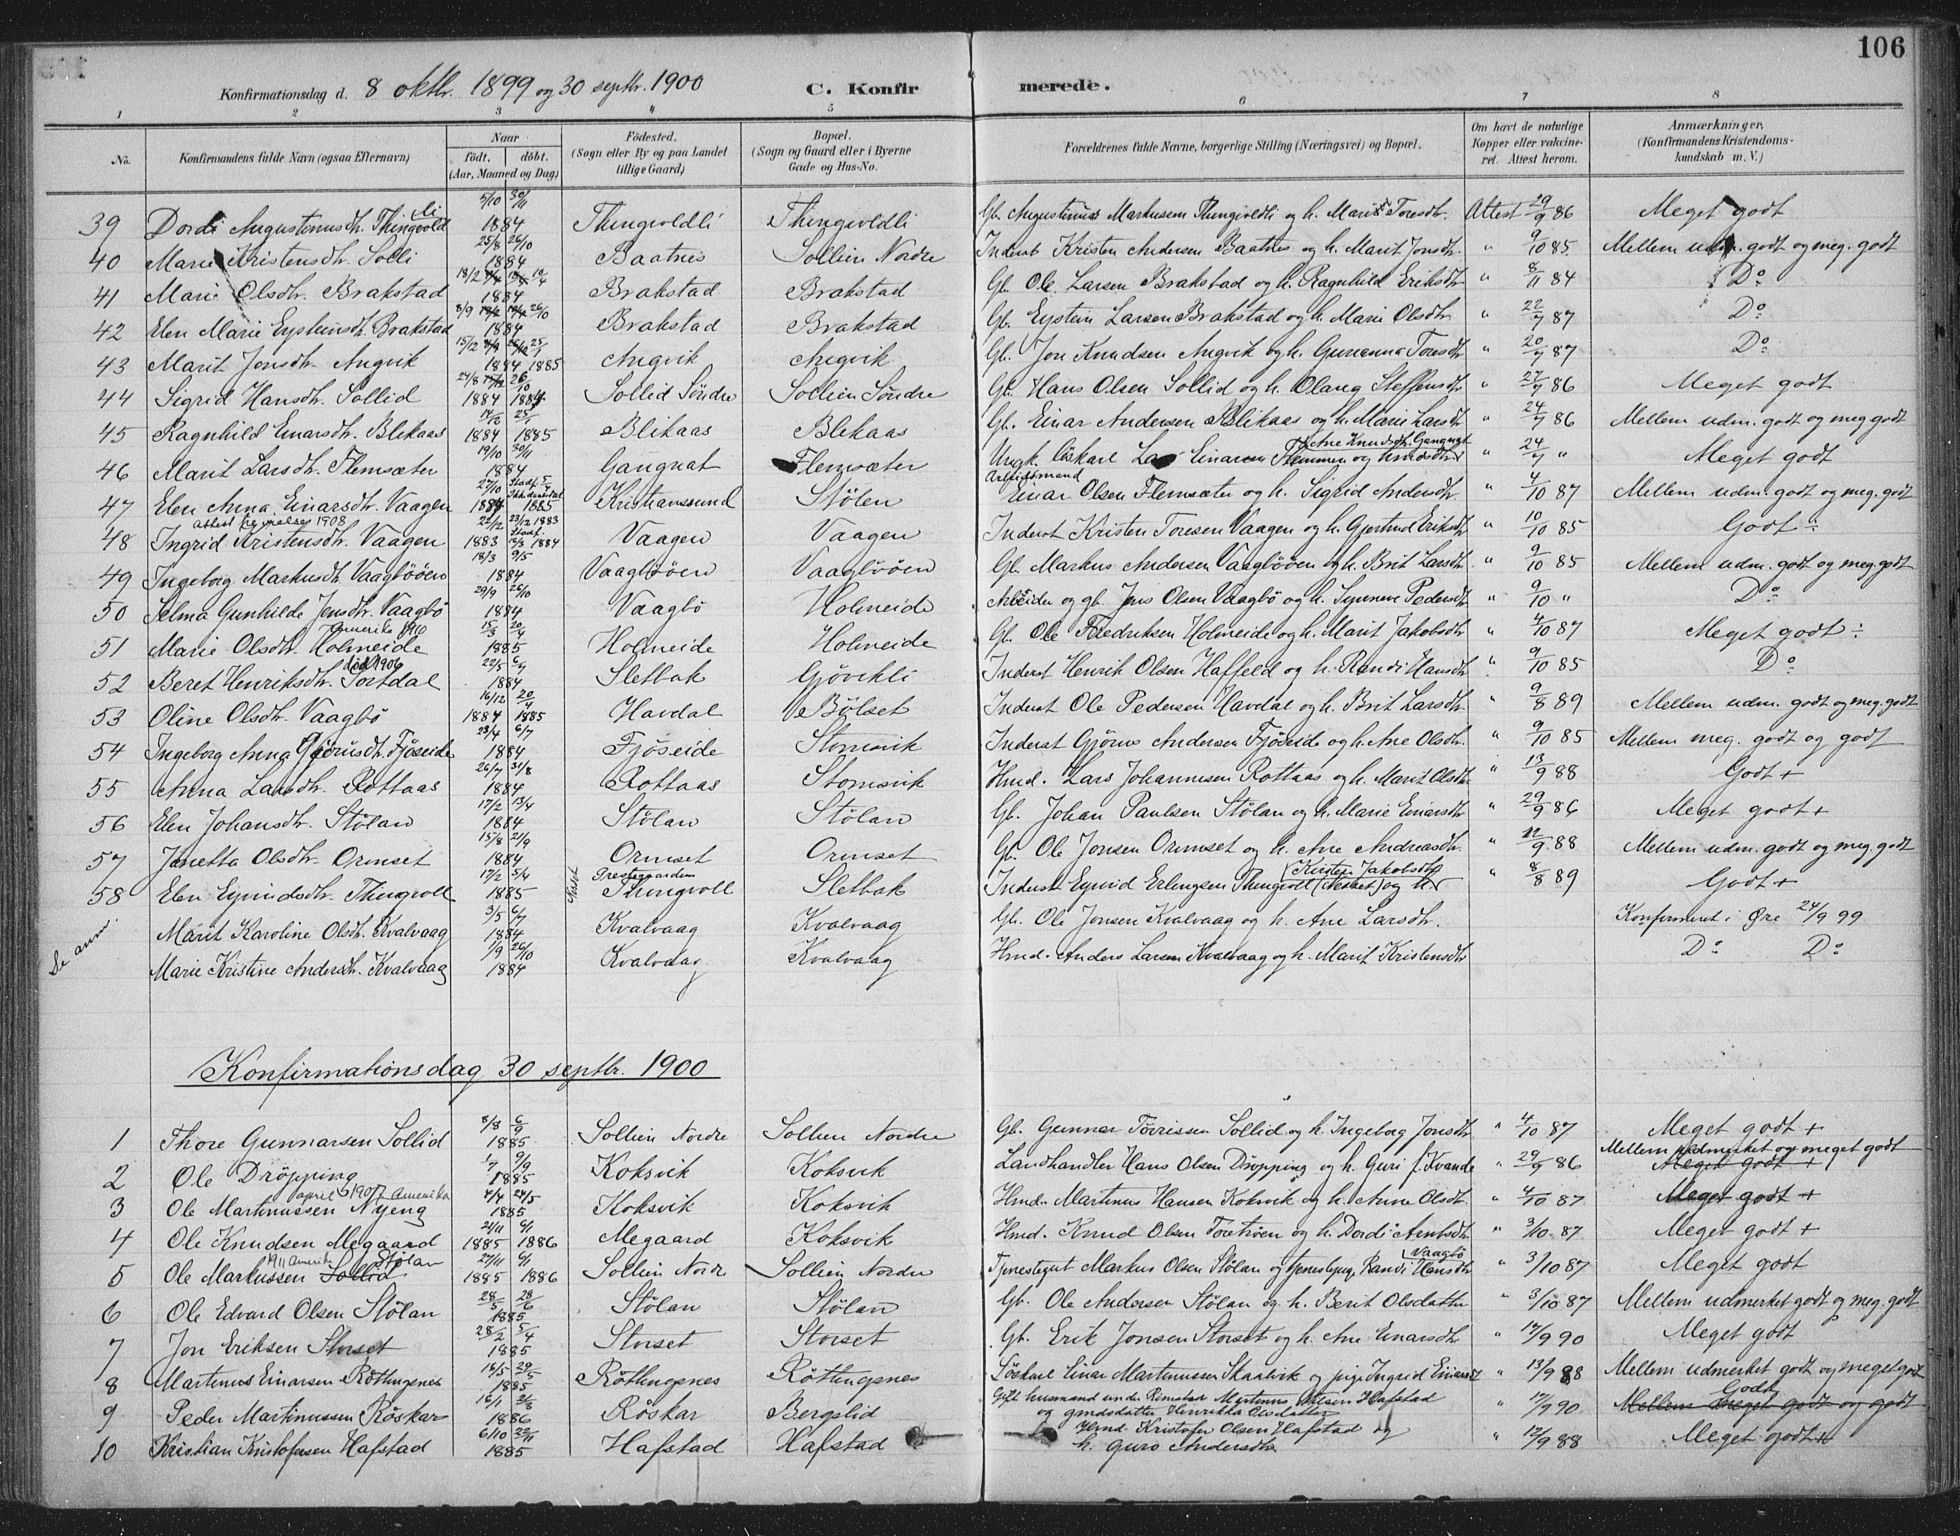 106
Konfirmationsdag d. 8 oktbr. 1899 og 30 septbr. 1900 C. Konfirmerede.
1 2 3 4 5 6 7 8
No. Konfirmandens fulde Navn (ogsaa Efternavn) Naar født, døbt. (Aar, Maaned og Dag) Fødested. (Sogn eller By og paa Landet tillige Gaard) Bopæl. (Sogn og Gaard eller i Byerne Gade og Hus-No. Forældrenes fulde Navne, borgerlige Stilling (Næringsvei) og Bopæl. Om havt de naturlige Kopper eller vakcineret. Attest herom. Anmærkninger. (Konfirmandens Kristendomskundskab m. V.)
39 Dordi Augustinusdtr. Thingvoldli 5/10 30/11 1884 Thingvoldli Thingvoldli Gb. Augustinus Markussen Thingvoldli og h. Marit Toresdtr. Attest 29/9 86 Meget godt
40 Marie Kristensdtr. Solli 25/8 26/10 1884 Baatnes Sollien Nordre Inderst Kristen Andersen Baatnes og h. Marit Jonsdtr " 9/10 85. Mellem udm. godt og meg. godt
41 Marie Olsdtr. Brakstad 18/2 1884 Brakstad Brakstad Gb. Ole Larsen Brakstad og h. Ragnhild Eriksdtr " 8/11 84 Do
42 Elen Marie Eysteinsdtr. Brakstad 8/9 26/10 1884 Brakstad Brakstad Gb. Eystein Larsen Brakstad og h. Marie Olsdtr " 22/7 87 Do
43 Marit Jonsdtr. Angvik 15/12 25/1 1884 1885 Angvik Angvik Gb. Jon Knudsen Angvik og h. Gurianna Toresdtr " 20/7 87 Do
44 Sigrid Hansdtr. Sollid 24/8 26/10 1884 1884 Sollid Söndre Sollien Söndre Gb. Hans Olsen Sollid og h. Olaug Steffensdtr " 27/9 86 Meget godt
45 Ragnhild Einarsdtr. Blikaas 25/1 1884 1885 Blikaas Blikaas Gb. Einar Andersen Blikaas og h. Marit Larsdtr " 24/7 86 Mellem udm. godt og meg godt
46 Marit Larsdtr. Flemsæter 19/10 30/11 1884 Gangnat Flemsæter Ungk. Lars Einarsen Flemmen og Ane Knudsdtr. Gangnat " 24/7 " Meget godt
47 Elen Anna Einarsdtr. Vaagen 27/10 1884 1885 Kristianssund Stölen Arbeidsmand Einar Olsen Flemsæter og h. Sigrid Andersdtr " 4/10 87 Mellem udm. godt og meg. godt
48 Ingrid Kristensdtr. Vaagen attest 1908 22/12 1883 23/12 1883 Stadf. 13/3 1884 Vaagen Vaagen Inderst Kristen Toresen Vaagen og h. Gjertrud Eriksdtr " 10/10 85 Godt
49 Ingeborg Markusdtr. Vaagbööen 18/3 9/5 1884 Vaagbööen Vaagbööen Gb. Markus Andersen Vaagbööen og h. Brit Larsdtr " 9/10 85 Mellem udm. godt og meg. godt
50 Selma Gunhilde Jensdtr. Vaagbö 29/9 26/10 1884 Vaagbö Holmeide Arbeider og gb. Jens Olsen Vaagbö og h. Synneve Pedersdtr " 9/10 " Do
51 Marie Olsdtr. Holmeide Amerika 1910 15/3 20/4 1885 Holmeide Holmeide Gb. Ole Fredriksen Holmeide og h. Marit Jakobsdtr " 4/10 87 Meget godt ÷
52 Beret Henriksdtr. Tortdal död 1906 22/5 6/7 1884 Sletbak Gjövikli Inderst Henrik Olsen Haffeld og h. Randi Hansdtr " 9/10 85 Do
53 Oline Olsdtr. Vaagbö 16/12 20/4 1884 1885 Havdal Bölset Inderst Ole Pedersen Havdal og h. Brit Larsdtr. " 9/8 89 Mellem udm. godt og meg. godt
54 Ingeborg Anna Gjörusdtr. Fjöseide 23/4 6/7 1884 Fjöseide Stomsvik Inderst Gjörus Andersen Fjöseide og h. Ane Olsdtr. " 9/10 85 Mellem meg. godt og godt
55 Anna Larsdtr. Rottaas 26/7 31/8 1884 Rottaas Stomsvik Hmd. Lars Johannesen Rottaas og h. Marit Olsdtr " 13/9 88 Godt +
56 Elen Johansdtr. Stölan 17/2 13/4 1884 Stölan Stölan Gb. Johan Paulsen Stölan og h. Marie Einarsdtr " 29/9 86 Meget godt +
57 Janetta Olsdtr. Ormset 15/8 21/9 1884 Ormset Ormset Gb. Ole Jonsen Ormset og h. Ane Andreasdtr. " 11/9 88 Mellem udm. godt og meg. godt
58 Elen Eyvindsdtr. Thingvoll 17/2 5/4 1885 Prestegaarden Thingvoll Sletbak Inderst Eyvind Erlingsen Thingvoll og h. Kirsten Jakobsdtr " 8/8 89 Godt +
Marit Karoline Olsdtr. Kvalvaag 3/5 6/7 1884 Kvalvaag Kvalvaag Gb. Ole Jonsen Kvalvaag og h. Ane Larsdtr. Konfirmeret i Øre 24/9 99
Marie Kristine Andersdtr. Kvalvaag 1/9 26/10 1884 Kvalvaag Kvalvaag Hmd. Anders Larsen Kvalvaag og h. Marit Kristensdtr Do Do
Konfirmationsdag 30 septbr. 1900
1 Thore Gunnarsen Sollid 8/8 6/9 1885 Sollien Nordre Sollien Nordre Gb. Gunnar Torrissen Sollid og h. Ingeborg Jonsdtr " 4/10 87 Meget godt +
2 Ole Dröpping 1/7 9/9 1885 Koksvik Koksvik Landhandler Hans Olsen Dröpping og h. Guri f. Kvande " 29/9 86 Mellem udmerket og meget godt Meget godt +
3 Ole Martinussen Nyeng april 1907 Amerika 4/4 24/5 1885 Koksvik Koksvik Hmd. Martinus Hansen Koksvik og h. Ane Olsdtr. " 4/10 87 Meget godt +
4 Ole Knudsen Megaard 21/11 6/1 1885 1886 Megaard Koksvik Hmd. Knud Olsen Toretröen og h. Dordi Arntsdtr " 3/10 87 Meget godt +
5 Ole Markussen Sollid Stölan 1911 Amerika 27/11 6/1 1885 1886 Sollien Nordr Sollien Nordre Tjenestegut Markus Olsen Stölan og tjenestepige Randi Hansdtr Vaagbö " 3/10 87 Meget godt
6 Ole Edvard Olsen Stölan 28/5 28/6 1885 Stölan Stölan Gb. Ole Andersen Stölan og h. Berit Olsdatter " 3/10 87 Mellem udmerket godt og meg. godt
7 Jon Eriksen Storset 28/2 5/4 1885 Storset Storset Gb. Erik Jonsen Storset og h. Ane Einarsdtr " 17/9 90 Meget godt
8 Martinus Einarsen Röttingsnes 16/5 29/5 1885 Röttingsnes Röttingsnes Löskarl Einar Martinussen Skaalvik og pige Ingrid Einarsdt " 13/9 88 Mellem udmerket godt og meget godt
9 Peder Martinussen Röskar 16/1 21/3 1886 Röskar Bergslid Gift husmand under Rimstad Martinus Nilsen Hafstad og gaardsdatter Henrikka Olsdatter " 17/9 90 Godt Mellem meget godt og godt
10 Kristian Kristofersen Hafstad 6/10 22/11 1885 Hafstad Hafstad Hmd Kristofer Olsen Hafstad og h. Guro Andersdtr " 12/9 88 Meget godt +